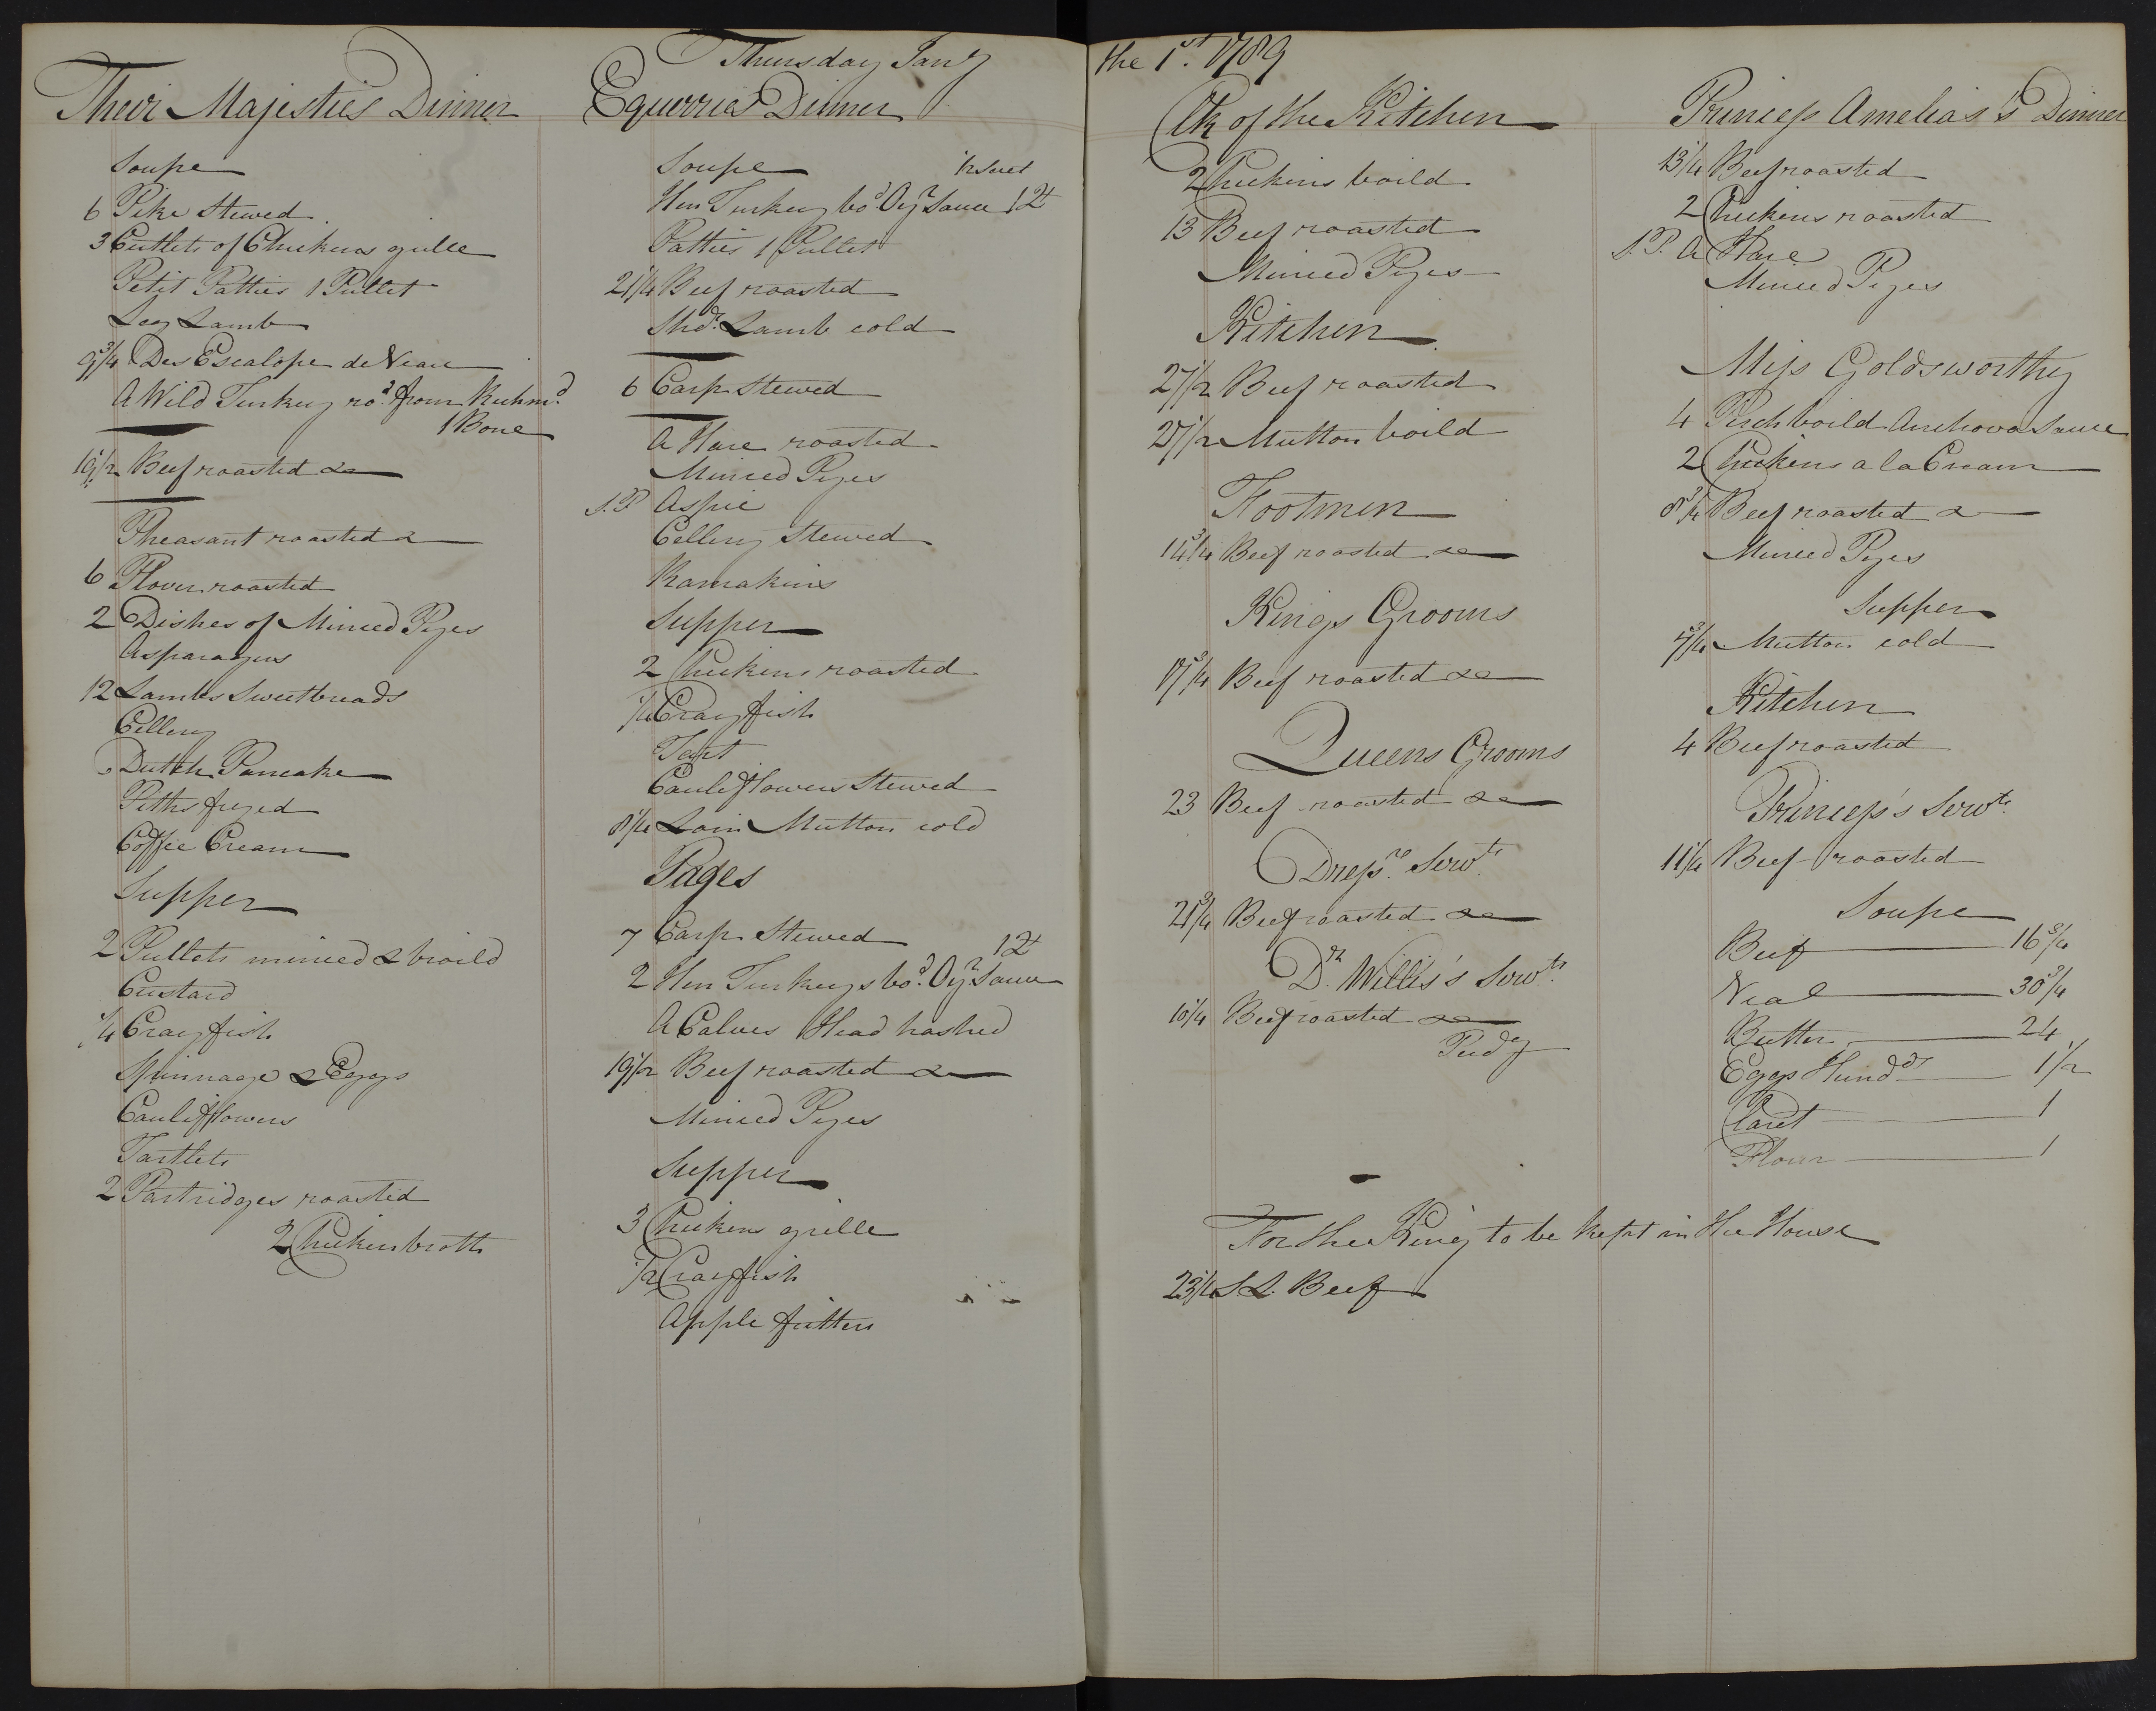 Thursday Jany the 1st. 1789
Their Majesties Dinner
Soupe
6 Pike Stewed
3 Cutlets of Chickens grille
Petit Patties 1 Pullet
Leg Lamb
9 3/4 Des Escalope de Veau
A Wild Turkey rod. from Richmd.
1 Bone
Beef roasted &
Pheasant roasted &
6 Plover roasted
2 Dishes of Minced Pyes
Asparagus
12 Lambs Sweetbreads
Cellery
Dutch Pancake
Piths fryed
Coffee Cream
Supper
2 Pullets minced & broild
Custard
1/4 Crayfish
Spinnage & Eggs
Cauliflowers
Tartlets
2 Partridges roasted
2 Chicken broth
Equerries Dinner
Soupe
Hen Turkey bod. Oyr Sauce 12t
Patties 1 Pullet
21 1/4 Beef roasted
Shdr. Lamb cold
6 Carp Stewed
A Hare roasted
Minced Pyes
S.P. Aspic
Cellery Stewed
Ramakins
Supper
2 Chickens roasted
1/4 Crayfish
Tart
Cauliflowers Stewed
8 1/4 Loin Mutton cold
Pages
7 Carp Stewed
12t
2 Hen Turkeys bod. Oyr. Sauce
A Calves Head hashed
19 1/2 Beef roasted &
Minced Pyes
Supper
3 Chickens grille
1/2 Crayfish
Apple fritters
Clk of the Kitchen
2 Chickens boild
13 Beef roasted
Minced Pyes
Kitchen
27 1/2 Beef roasted
27 1/2 Mutton boild
Footmen
14 3/4 Beef roasted &
Kings Grooms
17 3/4 Beef roasted &
Queens Grooms
23 Beef roasted &
Dressrs. Servts.
21 3/4 Beef roasted &
Dr. Willis's Servts.
10 1/4 Beef roasted &
Pudg
For the King to be kept in the House
23 1/4 S.L. Beef
Princess Amelias's Dinner
13 1/4 Beef roasted
2 Chickens roasted
S.P. A Hare
Minced Pyes
Miss Goldsworthy
4 Perch boild Anchova Sauce
2 Chickens a la Cream
8 3/4 Beef roasted &
Minced Pyes
Supper
7 3/4 Mutton cold
Kitchen
4 Beef roasted
Princess's Servts.
11 1/4 Beef roasted
Soupe
Beef 16 3/4
Veal 30 3/4
Butter 24
Eggs Hundds 1 1/2
Claret 1
Flour 1